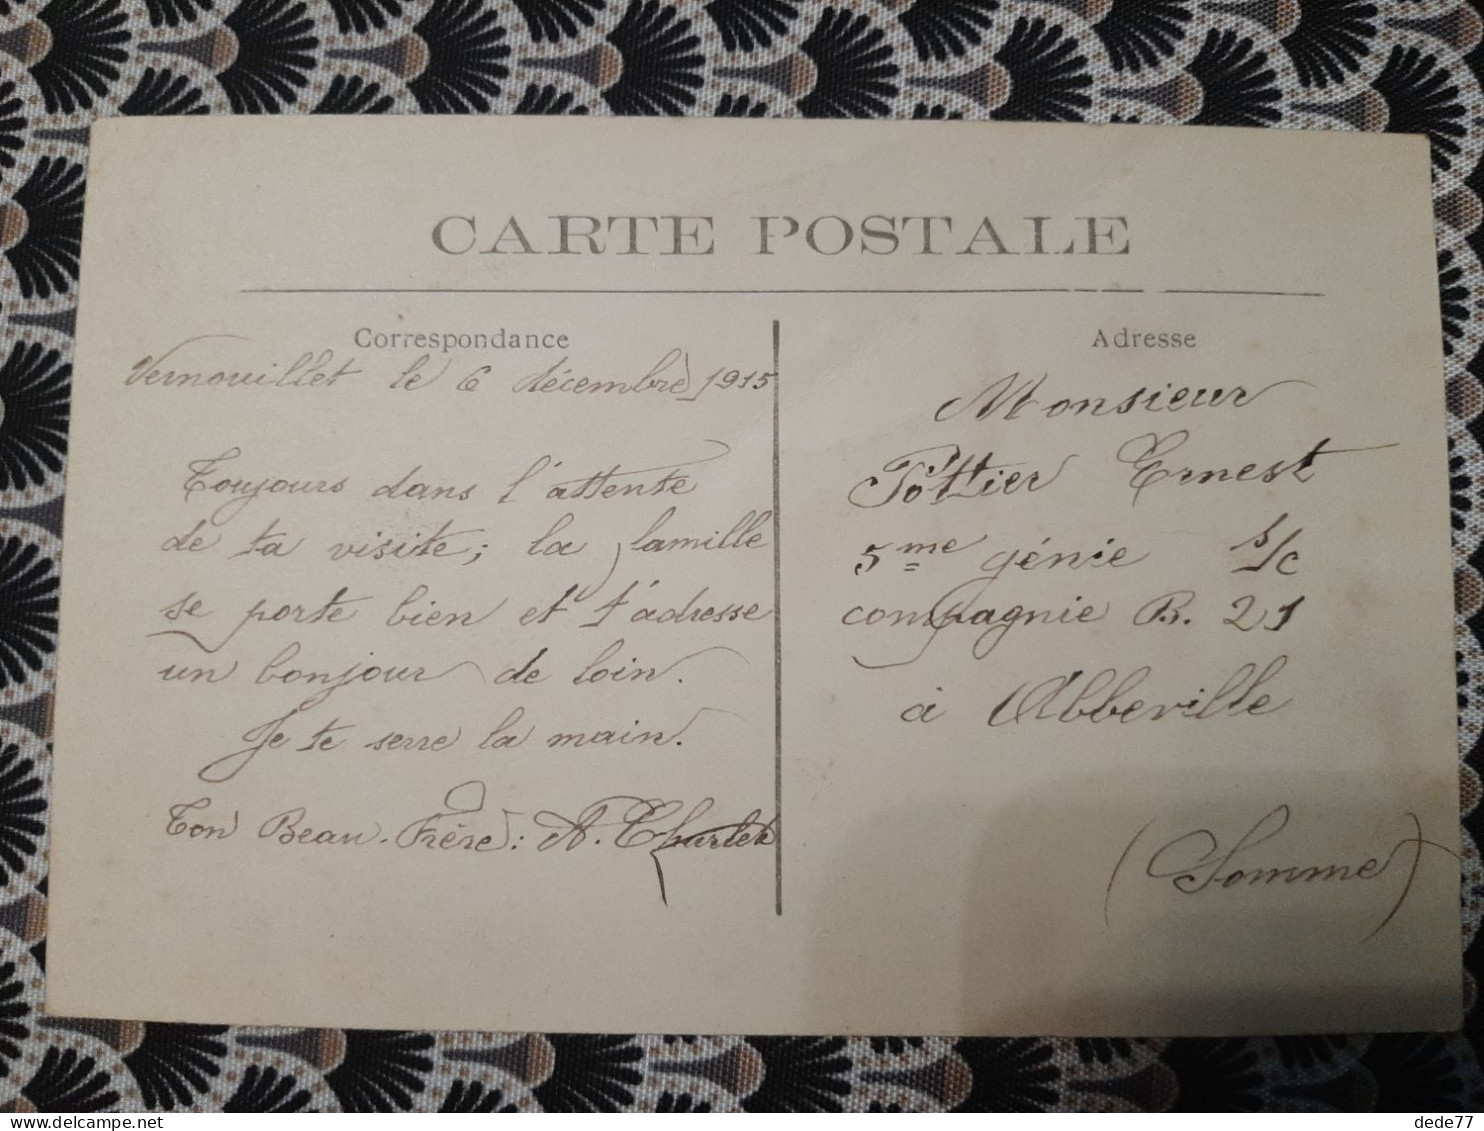 CARTE POSTALE
Correspondance
Vernouillet le 6 décembre 1915
Toujours dans l'attente
de ta visite; la famille
se porte bien et t'adresse
un bonjour de loin.
Je te serre la main.
Ton Beau-Frère: A.
Adresse
Monsieur
Pottier Ernest
5me génie s/c
compagnie R. 21
à Abbeville
(Somme)
delcampe.net
dede77